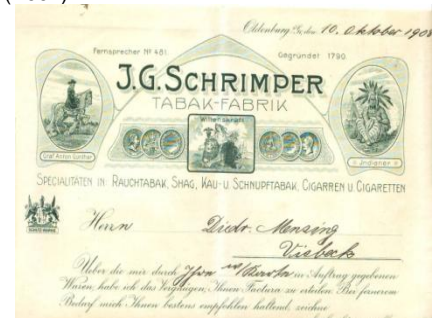 Oldenburg i/Gr., den 10. Oktober 190
Fernsprecher № 481.
Gegründet 1790.
J.G. SCHRIMPER
TABAK-FABRIK
Graf Anton Günther
Indianer
SPECIALITÄTEN IN: RAUCHTABAK, SHAG, KAU- U. SCHNUPFTABAK, CIGARREN U. CIGARETTEN
Herrn Diedr. Mensing
Visbeck
Ueber die mir durch Ihren in Auftrag gegebenen
Waren, habe ich das Vergnügen, Ihnen Factura zu erteilen. Bei fernerem
Bedarf mich Ihnen bestens empfohlen haltend, zeichne